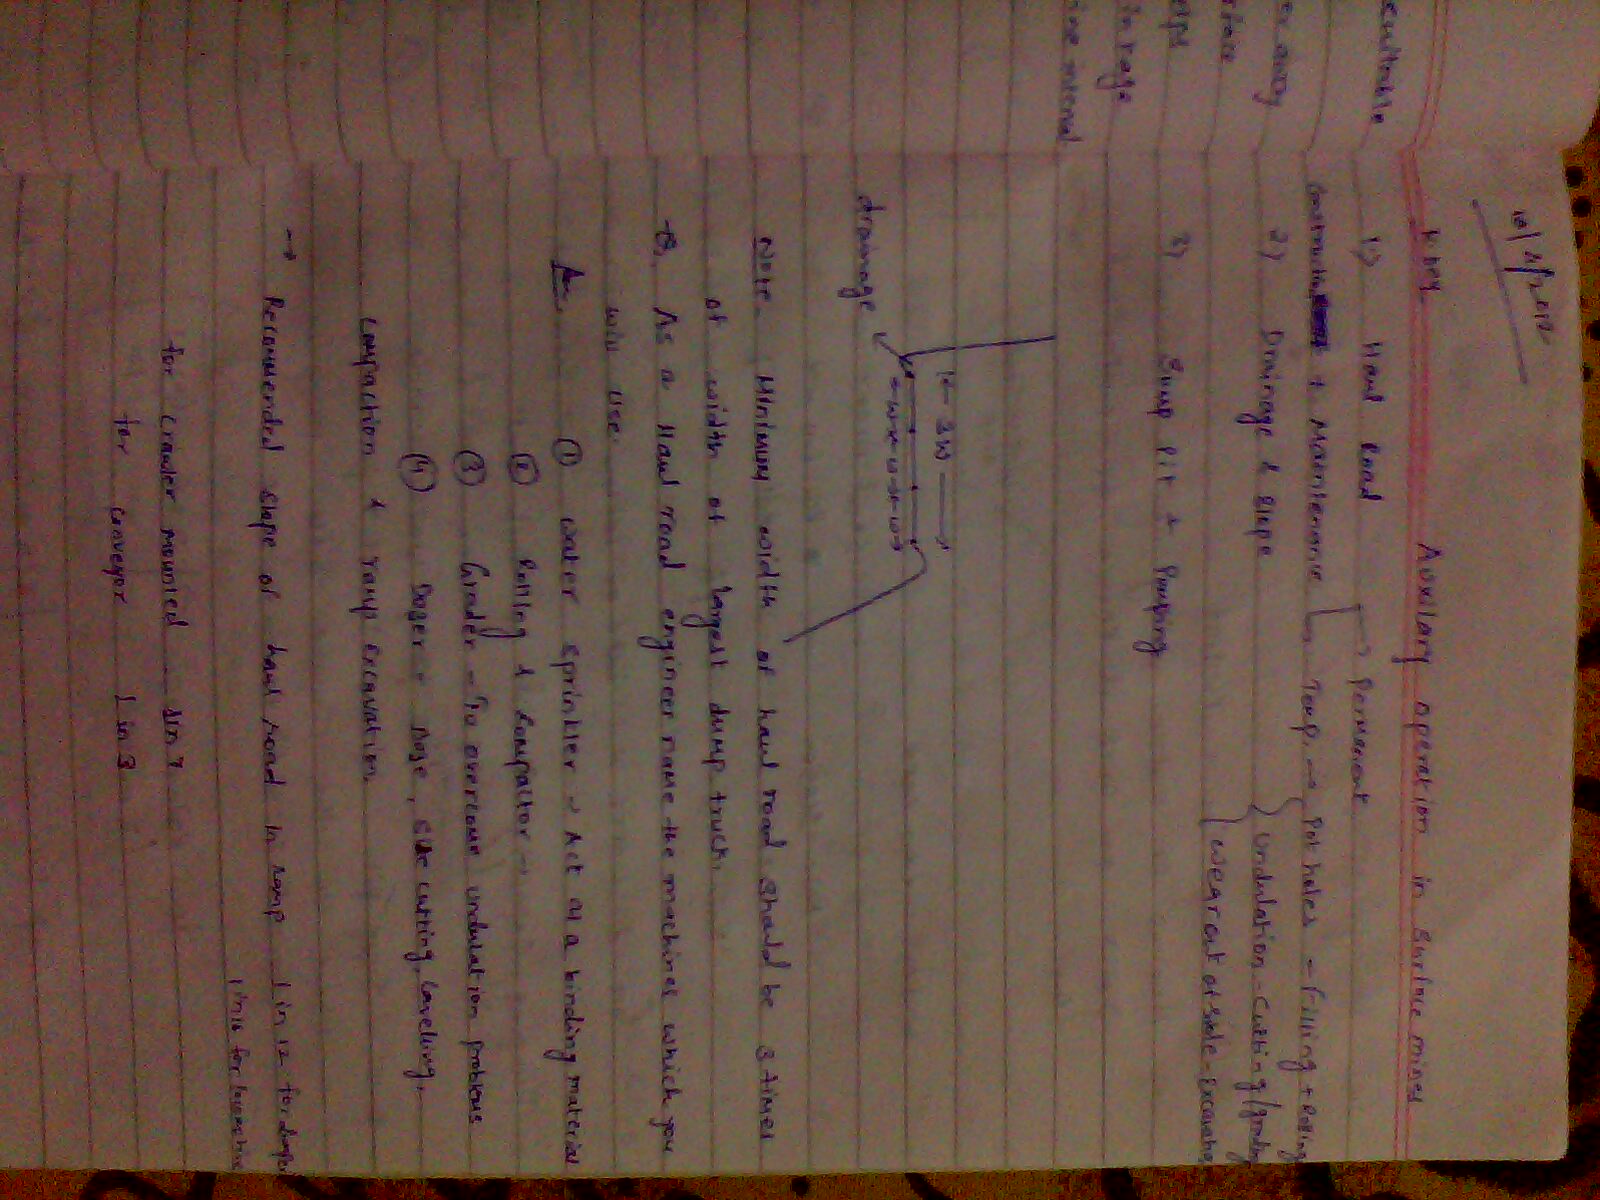 ecultrable
er away
rface
elps
in rage
ine internal
10/4/2012
Auxilary operation in surface mines
1) Haul Road → Permanent
+ Maintenance → Temp. → Pot holes - filling +
2) Drainage & slope
undulation - cutting/
of side -
3) Sump Pit + Pumping
|← 3W →|
←W→←W→←W→
drainage
Note. Minimum width of haul road should be 3 times
of width of largest dump truck.
Q. As a Haul road engineer name the machines which you
will use.
① water sprinkler → Act as a binding material
② Rolling & compactor →
③ Grader - To overcome undulation problems
④ Dozer - Doze, side cutting, leveling,
compaction & ramp excavation.
→ Recommended slope of haul road in ramp 1 in 12 for
1 in 16 for
for crawler mounted
for conveyor 1 in 3